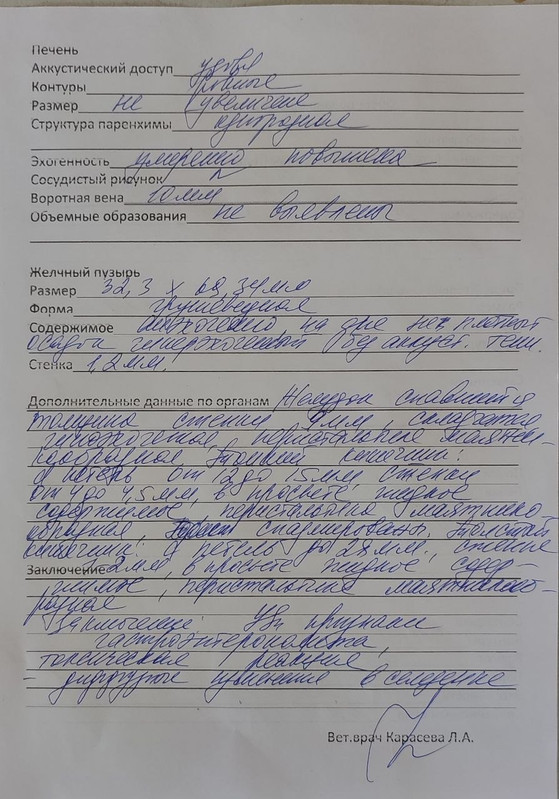 Печень
Аккустический доступ удовл
Контуры ровные
Размер не увеличена
Структура паренхимы однородная
Эхогенность умеренно повышена
Сосудистый рисунок N
Воротная вена 10 мм
Объемные образования не выявлены
Желчный пузырь
Размер 32,3 х 68,34мм
Форма грушевидная
Содержимое анэхогенно, на дне неплотный
осадок гиперэхогенный без аккуст. тени.
Стенка 1,2 мм.
Дополнительные данные по органам Желудок спавшийся
толщина стенки мм, складчатая
перистальтика маятни-
кообразная Тонкий кишечник:
d петель от 12 до 15мм, стенки
от 4 до 4,5мм, в просвете жидкое
содержимое, перистальтика маятнико-
образная, спазмирован. Толстый
кишечник: d петель до 28мм., стенка
Заключение 2мм, в просвете жидкое содер-
жимое, перистальтика маятникооб-
разная
Заключение: Узи признаки
гастроэнтероколита,
токсическая реакция
- диффузные изменения в селезенке
Вет.врач Карасева Л.А.